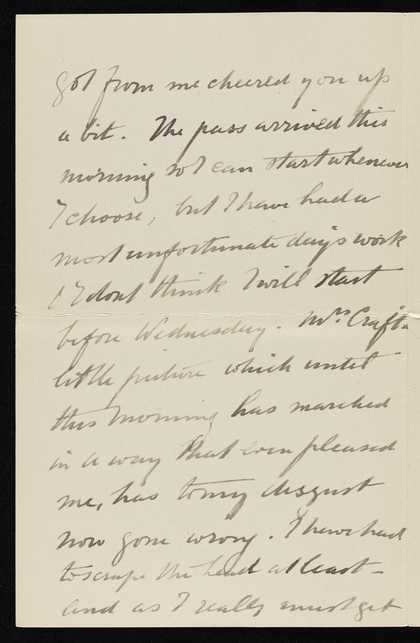 got from me cheered you up
a bit. The pass arrived this
morning so I can start whenever
I choose, but I have had a
most unfortunate day's work
& I dont think I will start
before Wednesday. Mrs Craft
little picture which until
this morning has marched
in a way that even pleased
me, has to my disgust
now gone wrong. I have had
to scrape the head at least -
and as I really must get